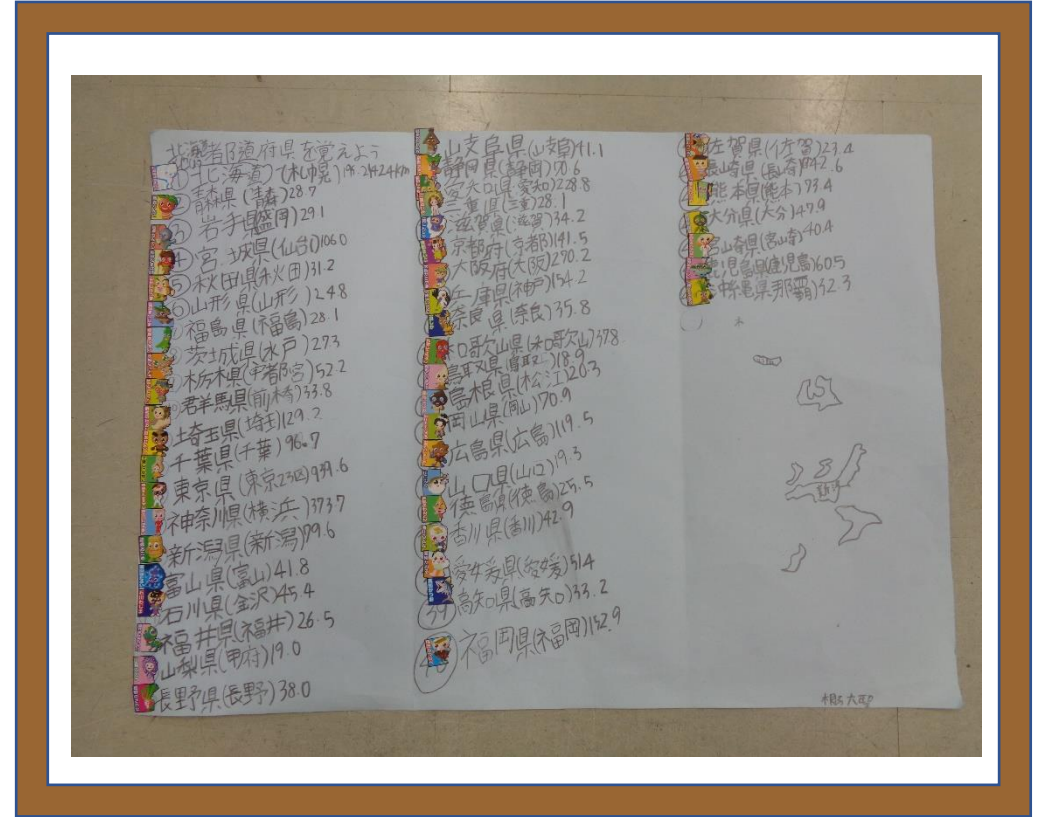 北海都道府県を覚えよう
① 北海道(札幌)
② 青森県(青森)28.7
③ 岩手県(盛岡)29.1
④ 宮城県(仙台)106.0
⑤ 秋田県(秋田)31.2
⑥ 山形県(山形)24.8
福島県(福島)28.1
茨城県(水戸)27.3
栃木県(宇都宮)52.2
群馬県(前橋)33.8
埼玉県(埼玉)129.2
千葉県(千葉)96.7
東京県(東京23区)939.6
神奈川県(横浜)373.7
新潟県(新潟)79.6
富山県(富山)41.8
石川県(金沢)45.4
福井県(福井)26.5
山梨県(甲府)19.0
長野県(長野)38.0
静岡県(静岡)70.6
愛知県(愛知)228.8
三重県(三重)28.1
滋賀県(滋賀)34.2
京都府(京都)141.5
大阪府(大阪)270.2
兵庫県(神戸)154.2
奈良県(奈良)35.8
和歌山県(和歌山)37.8
鳥取県(鳥取)18.9
島根県(松江)20.3
岡山県(岡山)70.9
広島県(広島)119.5
山口県(山口)19.3
徳島県(徳島)25.5
香川県(香川)42.9
愛媛県(愛媛)51.4
39 高知県(高知)33.2
40 福岡県(福岡)152.9
佐賀県(佐賀)23.4
長崎県(長崎)42.6
熊本県(熊本)73.4
大分県(大分)47.9
宮崎県(宮崎)40.4
鹿児島県(鹿児島)60.5
沖縄県那覇)32.3